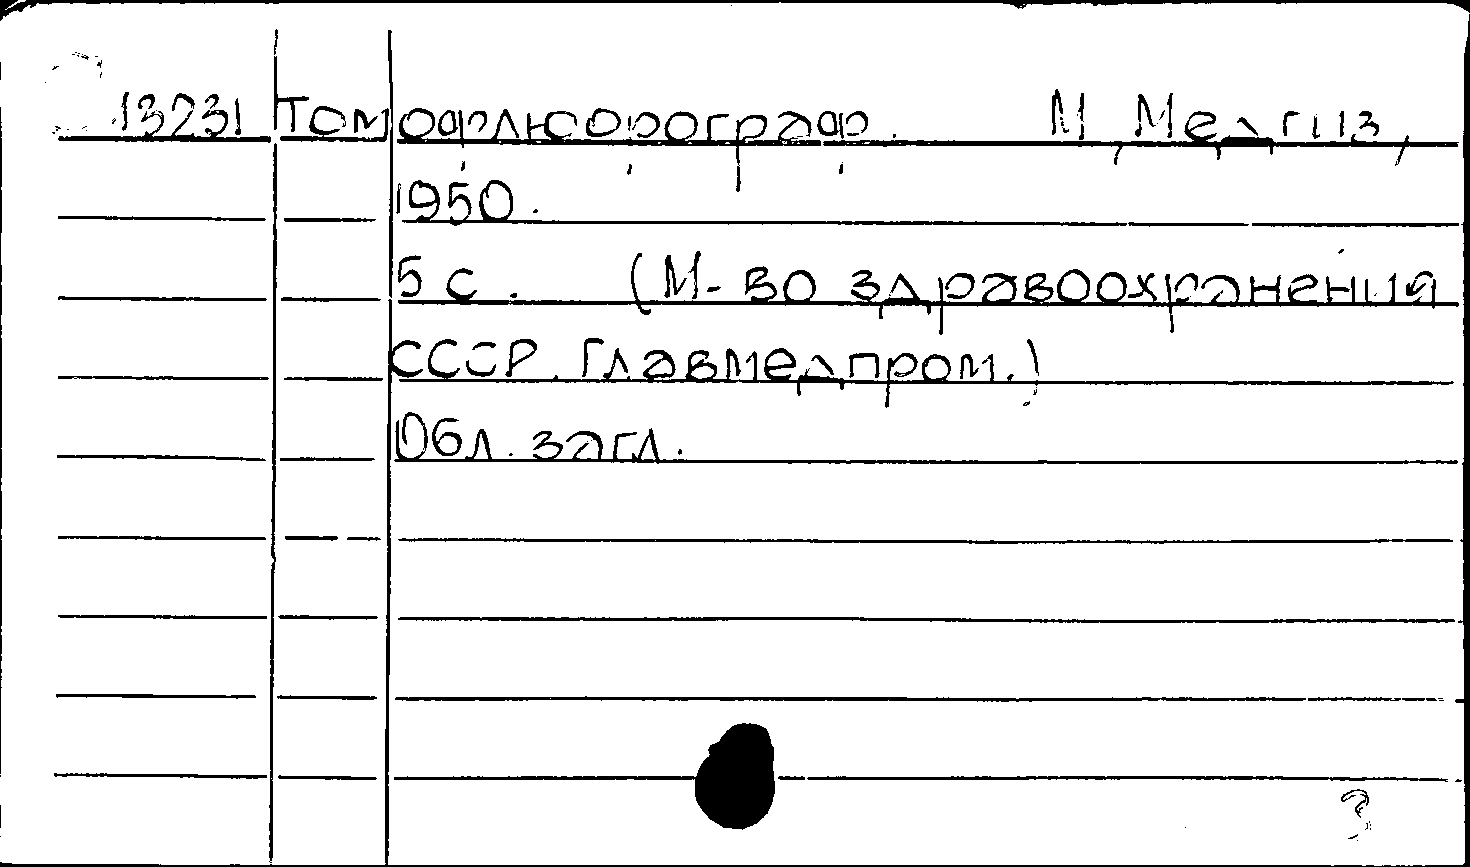 13231 Томофлюорограф. М, Медгиз,
1950.
5 с. (М-во здравоохранения
СССР. Главмедпром.)
Обл. загл.
3